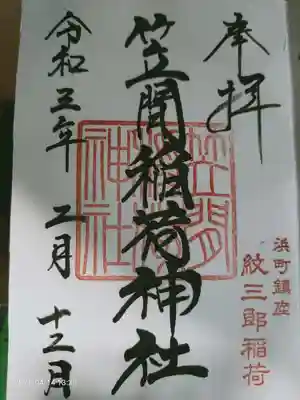 奉拝
浜町鎮座
紋三郎稲荷
笠間稲荷神社
笠間
稲荷
神社
令和三年 二月 十二日